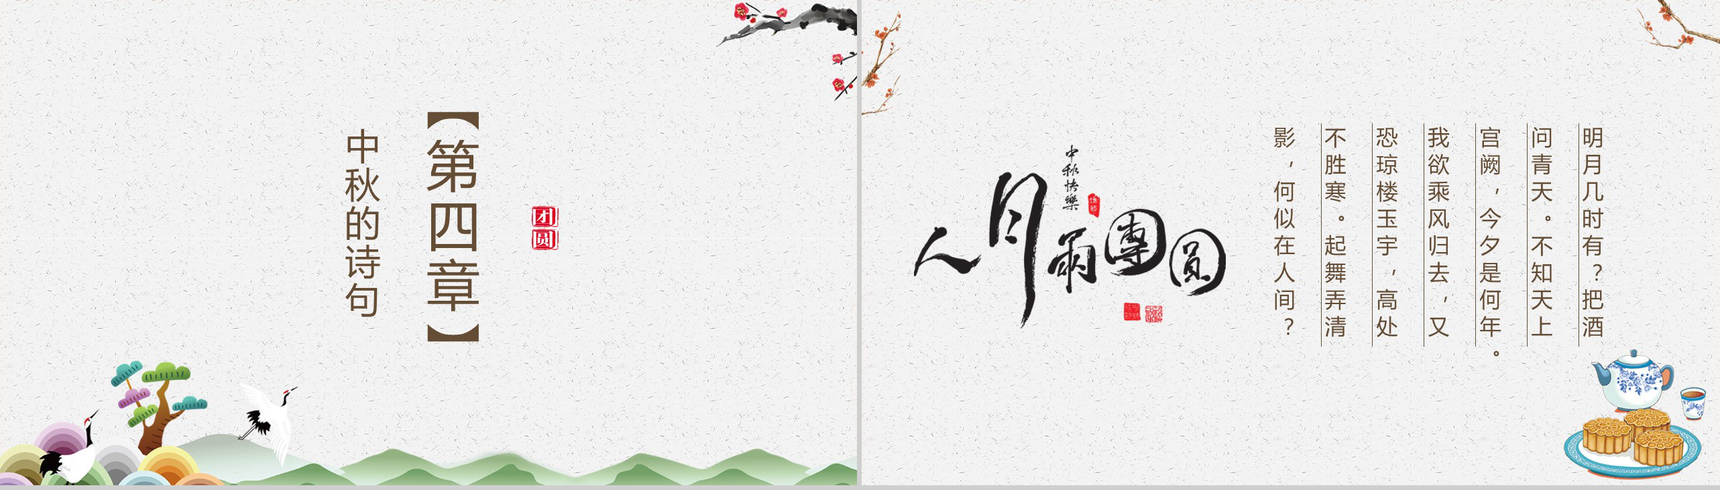 【第四章】
中秋的诗句
团圆
中秋快樂
人月兩團圓
明月几时有？把酒
问青天。不知天上
宫阙，今夕是何年。
我欲乘风归去，又
恐琼楼玉宇，高处
不胜寒。起舞弄清
影，何似在人间？